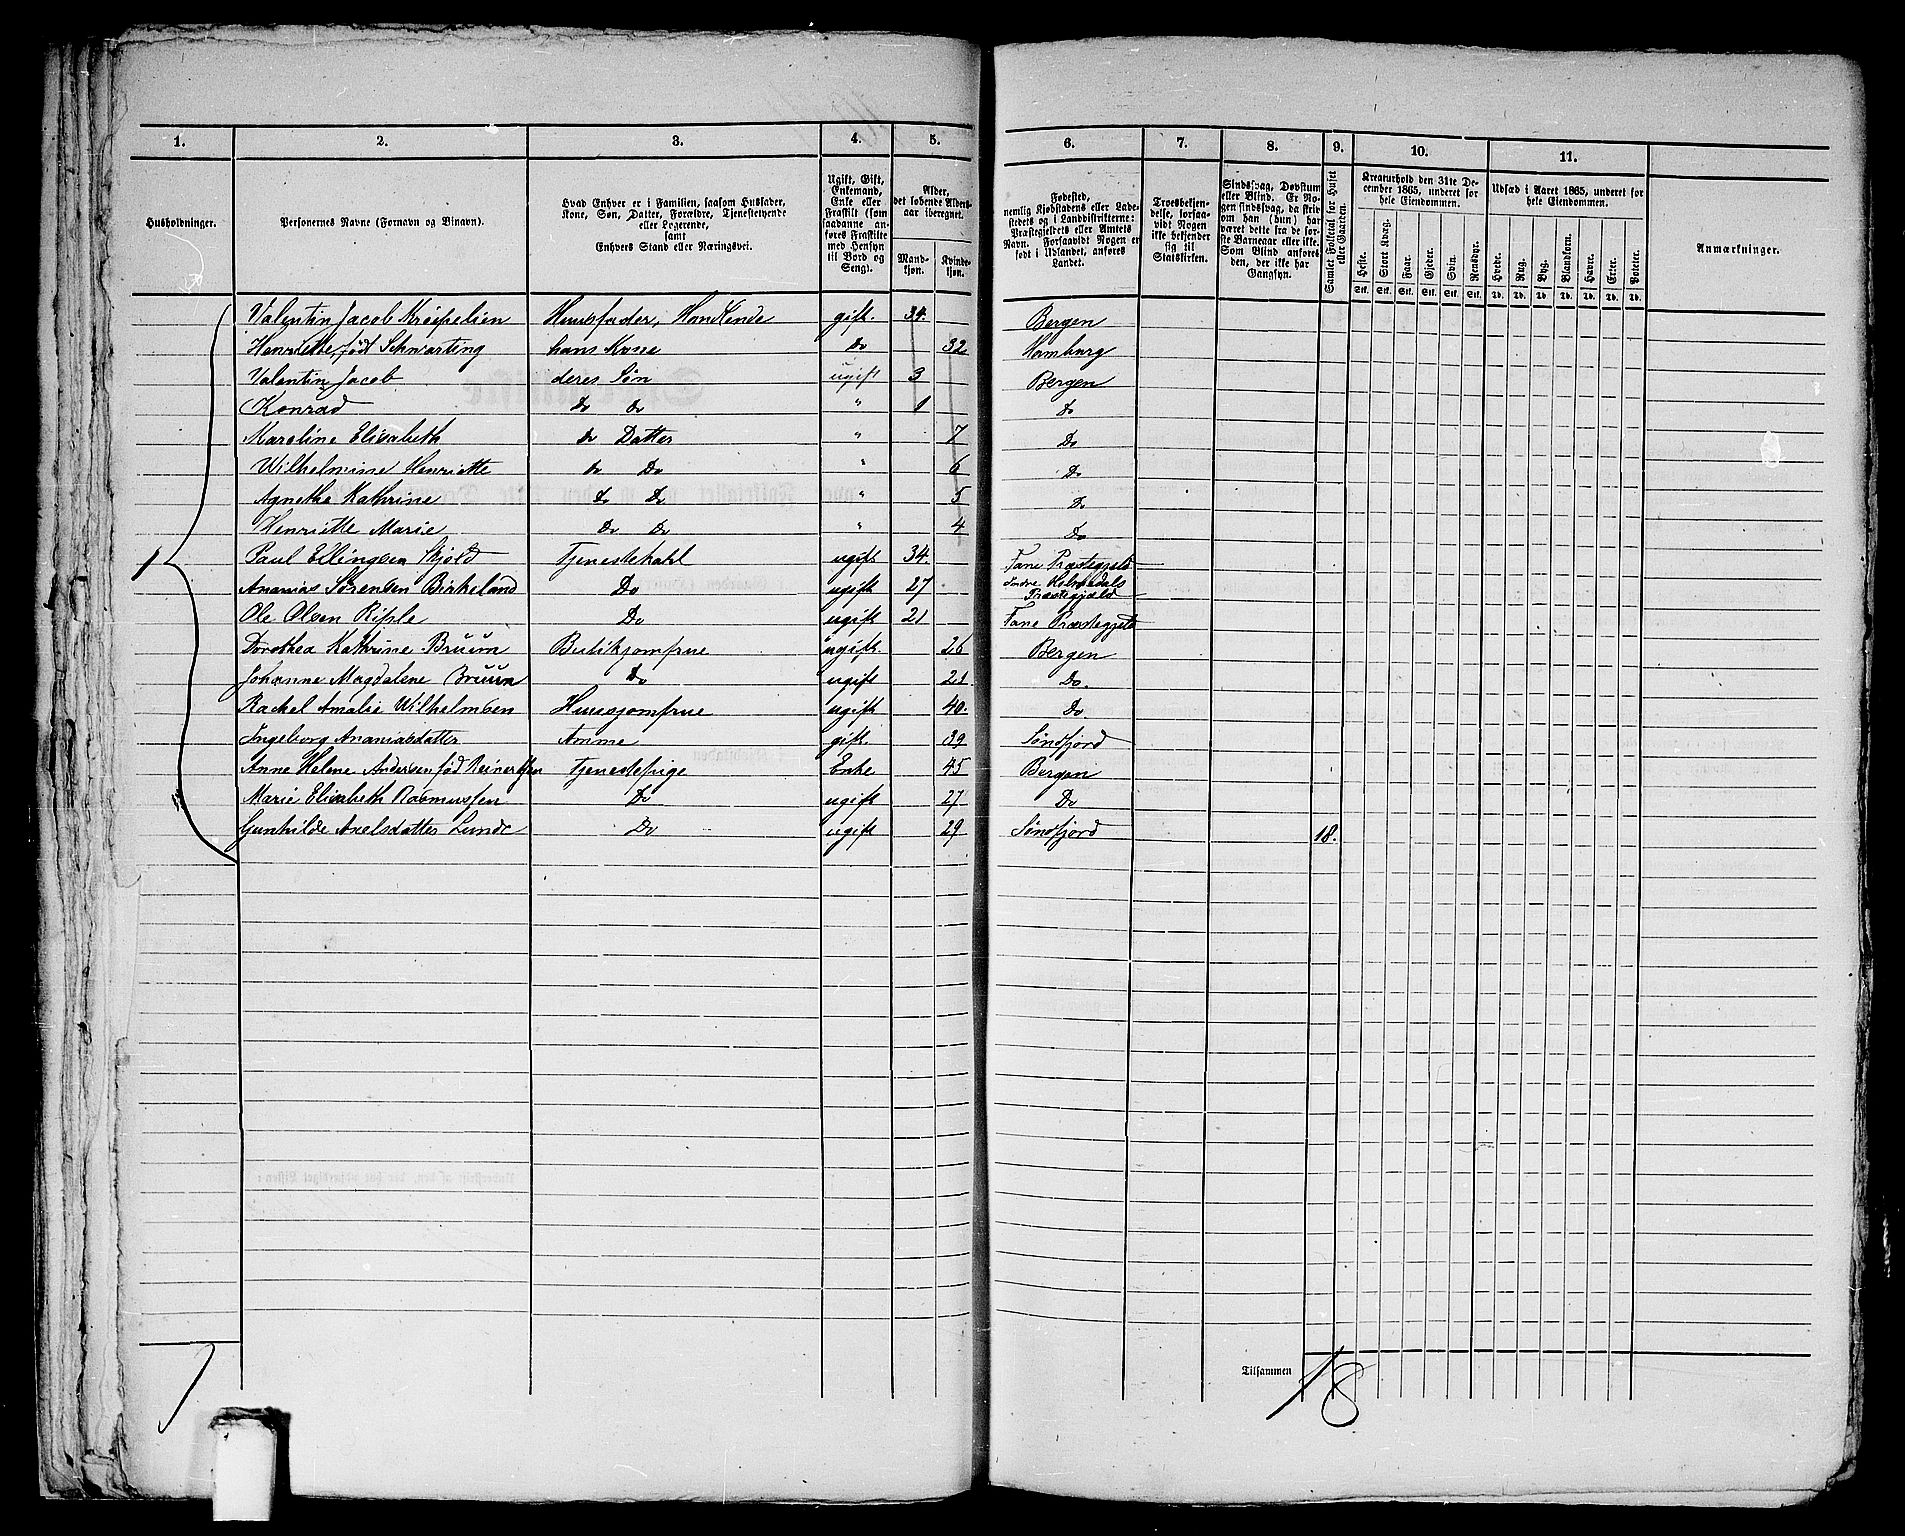 1. 2. 3. 4. 5. 6. 7. 8. 9. 10. 11.
Husholdninger.
Personernes Navne (Fornavn og Binavn).
Hvad Enhver er i Familien, saasom Husfader,
Kone, Søn, Datter, Forældre, Tjenestetyende
eller Logerende,
samt
Enhvers Stand eller Næringsvei.
Ugift, Gift,
Enkemand,
Enke eller
Fraskilt (som
saadanne an-
føres Fraskilte
med Hensyn
til Bord og
Seng).
Alder,
det løbende Alders-
aar iberegnet.
Mand-
kjøn.
Kvinde-
kjøn.
Fødested,
nemlig Kjøbstadens eller Lade-
stedets og i Landdistrikterne:
Præstegjeldets eller Amtets
Navn. Forsaavidt Nogen er
født i Udlandet, anføres
Landet.
Troesbekjen-
delse, forsaa-
vidt Nogen
ikke bekjender
sig til
Statskirken.
Sindssvag, Døvstum
eller Blind. Er No-
gen sindssvag, da skriv
om han (hun) har
været dette fra de før-
ste Barneaar eller ikke.
Som Blind anføres
den, der ikke har
Gangsyn.
Samlet Folketal for Huset
eller Gaarden.
Kreaturhold den 31te De-
cember 1865, underet for
hele Eiendommen.
Heste. Stort Kvæg. Faar. Gjeder. Svin. Rensdyr.
Stk. Stk. Stk. Stk. Stk. Stk.
Udsæd i Aaret 1865, underet for
hele Eiendommen.
Hvede. Rug. Byg. Blandkorn. Havre. Erter. Poteter.
Td. Td. Td. Td. Td. Td. Td.
Anmærkninger.
Valentin Jacob Krøipelien Huusfader, Handlende gift. 34. Bergen
Henriette, født Schwarting hans Kone Do 32. Hamburg
Valentin Jacob deres Søn ugift 3 Bergen
Konrad Do Do " 1 Do
Karoline Elisabeth Do Datter " 7 Do
Wilhelmine Henriette Do Do " 6 Do
Agnethe Kathrine Do Do " 5 Do
Henriette Marie Do Do " 4 Do
1 Paul Ellingsen Skjold Tjenestekarl ugift 34. Fane Præstegjeld
Ananias Sørensen Birkeland Do ugift 27 Indre Holmedals
Præstegjæld
Ole Olsen Riple Do ugift 21 Fane Præstegjeld
Dorothea Kathrine Bruun Butikjomfrue ugift. 26 Bergen
Johanne Magdalene Bruun Do ugift 21. Do.
Rachel Amalie Wilhelmsen Huusjomfrue ugift 40. Do.
Ingeborg Ananiasdatter Amme gift. 39 Søndfjord
Anne Helene Andersen fød Reinertsen Tjenestepige Enke 45 Bergen
Marie Elisabeth Rasmussen Do ugift 27 Do
Gunhilde Axelsdatter Lunde Do ugift 29 Søndfjord 18.
1
Tilsammen 18